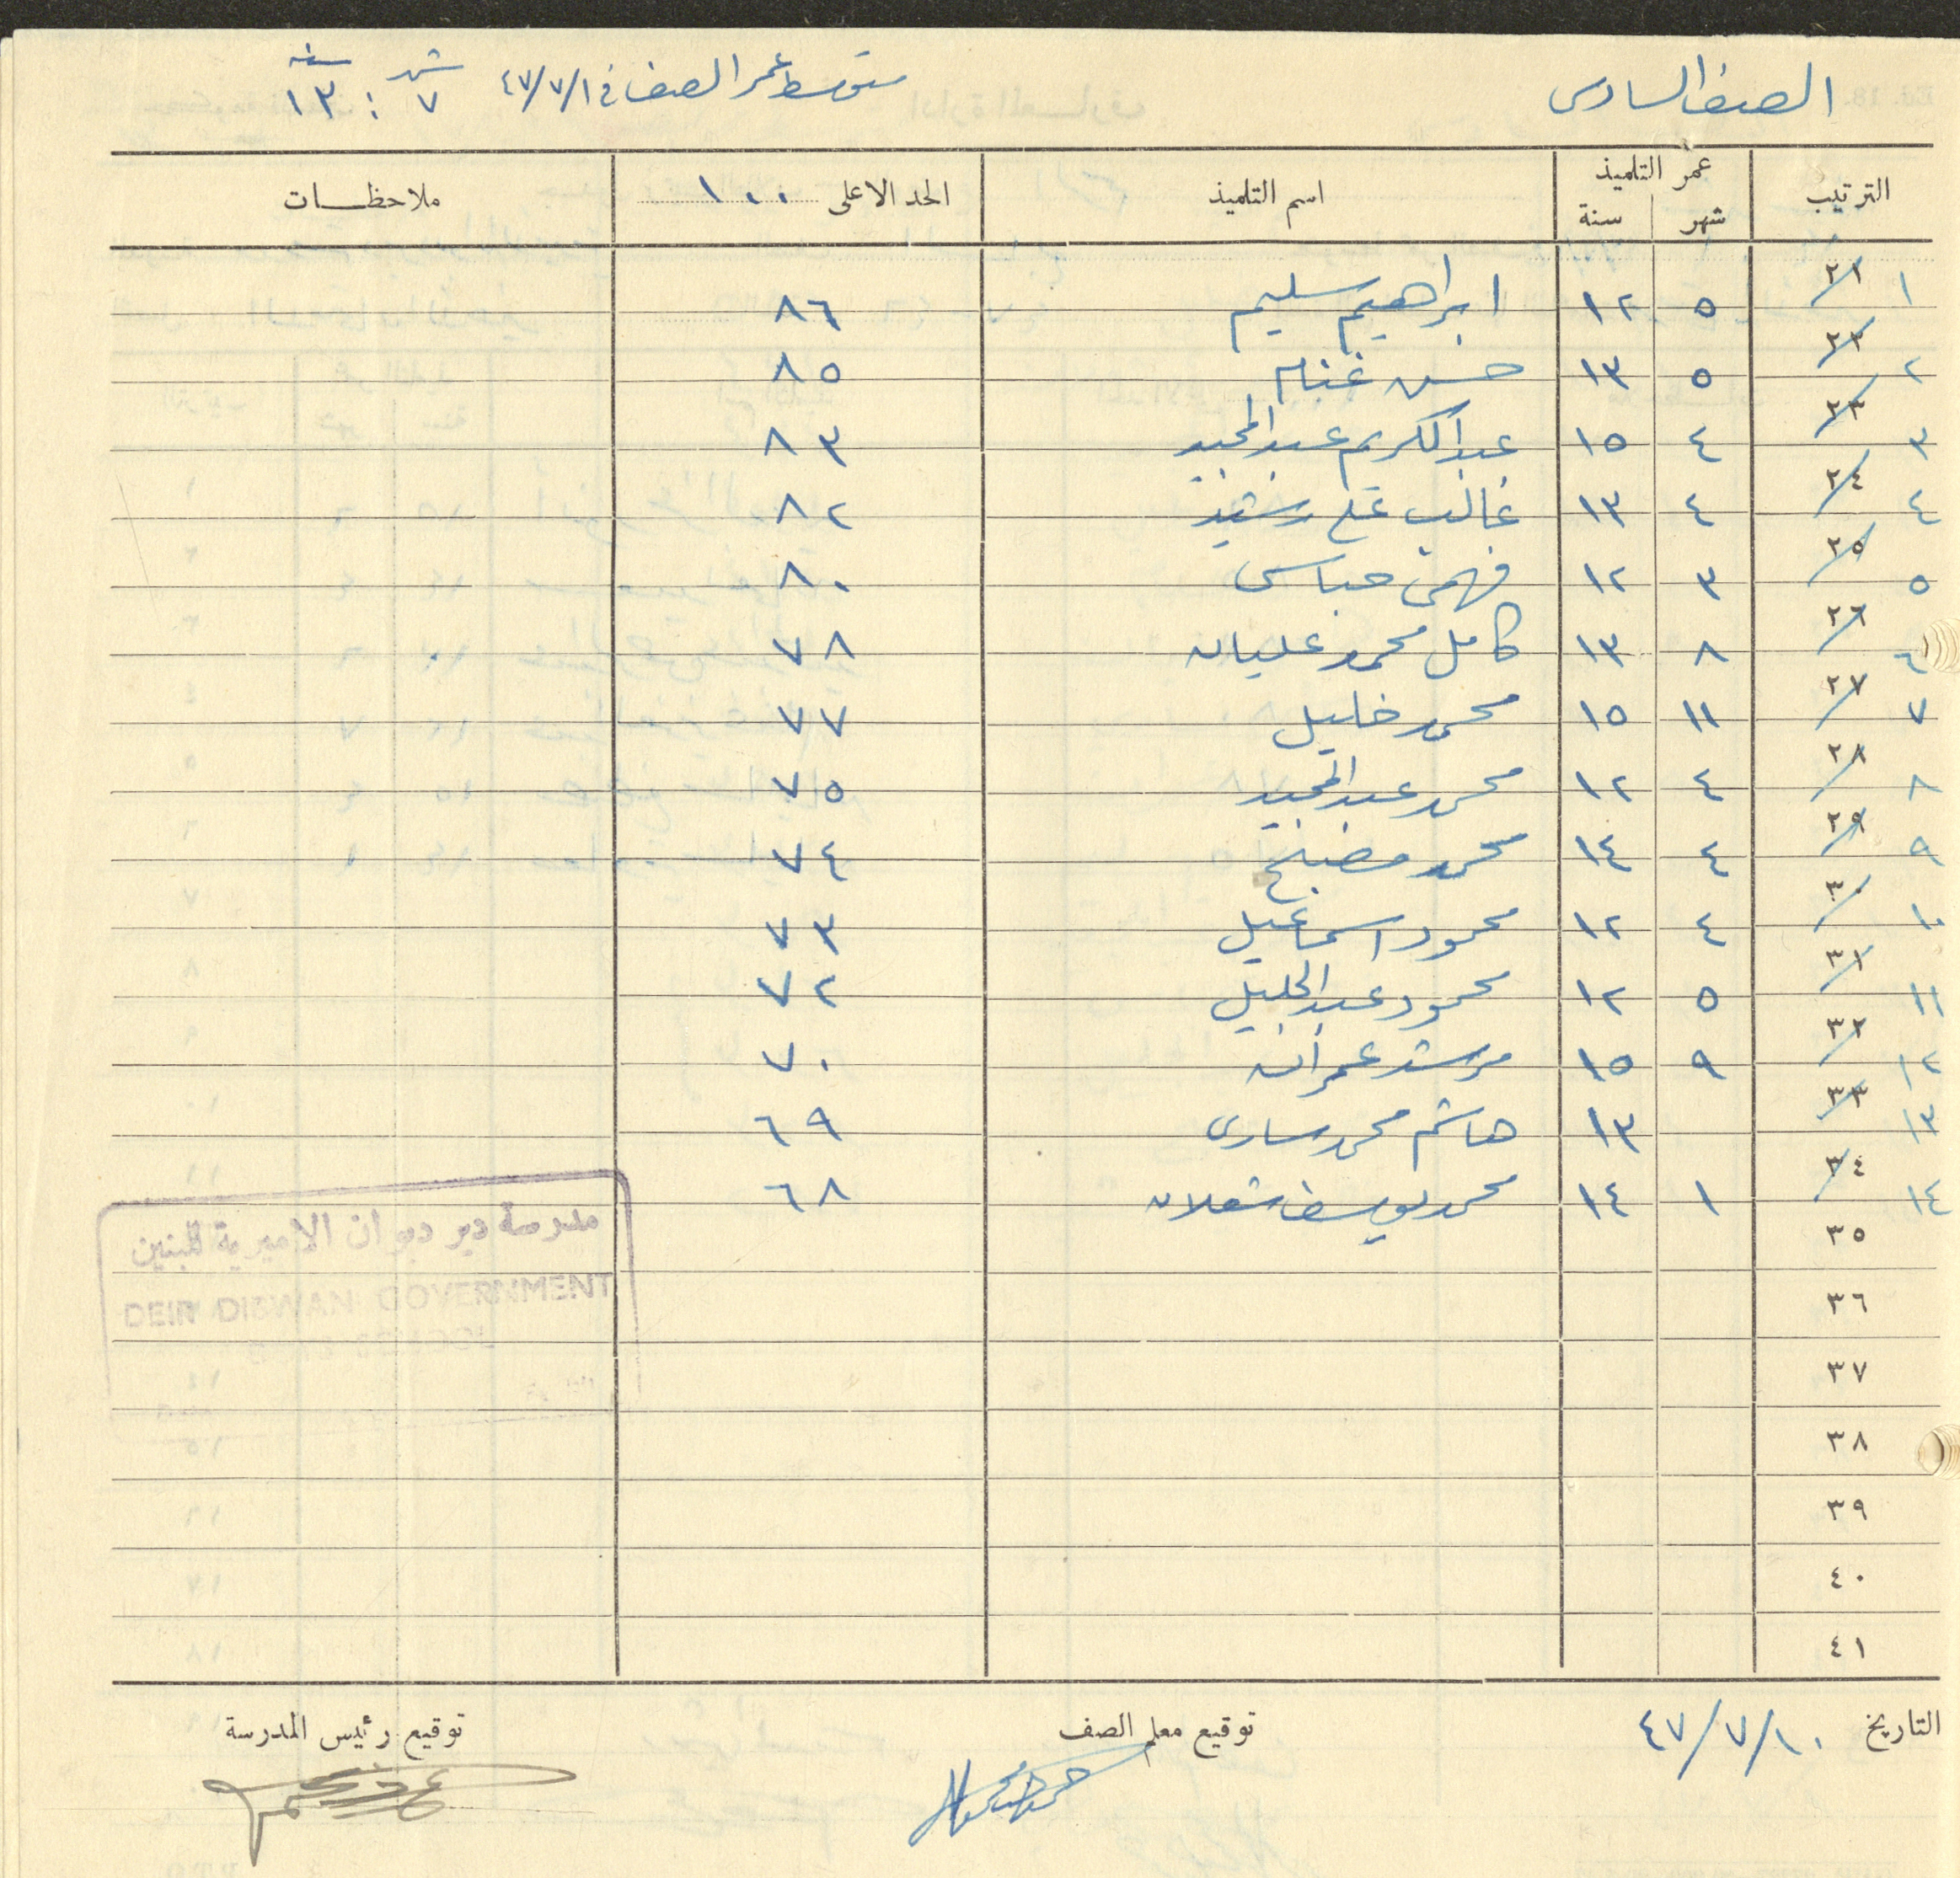 الصف السادس
متوسط عمر الصف في ٤٧/٧/١ شهر ٧ : سنة ١٣
الترتيب عمر التلميذ شهر سنة اسم التلميذ الحد الاعلى ١٠٠ ملاحظــات
١ ٢١ ٥ ١٢ ابراهيم سليم ٨٦
٢ ٢٢ ٥ ١٣ حسن غنام ٨٥
٣ ٢٣ ٤ ١٥ عبد الكريم عبد المجيد ٨٣
٤ ٢٤ ٤ ١٣ غالب علي رشيد ٨٢
٥ ٢٥ ٣ ١٢ فهمي عباسي ٨٠
٦ ٢٦ ٨ ١٣ كامل محمد عليان ٧٨
٧ ٢٧ ١١ ١٥ محمد خليل ٧٧
٨ ٢٨ ٤ ١٢ محمد عبد المجيد ٧٥
٩ ٢٩ ٤ ١٤ محمد مصبح ٧٤
١٠ ٣٠ ٤ ١٢ محمود اسماعيل ٧٣
١١ ٣١ ٥ ١٢ محمود عبد الجليل ٧٢
١٢ ٣٢ ٩ ١٥ مرشد عمران ٧٠
١٣ ٣٣ ١٣ هاشم محمد ساري ٦٩
١٤ ٣٤ ١ ١٤ محمد يوسف شعلان ٦٨
٣٥
٣٦
٣٧
٣٨
٣٩
٤٠
٤١
مدرسة دير ديوان الاميرية للبنين
DEIR DIBWAN GOVERNMENT
BOYS SCHOOL
التاريخ ٤٧/٧/١٠ توقيع معلم الصف توقيع رئيس المدرسة